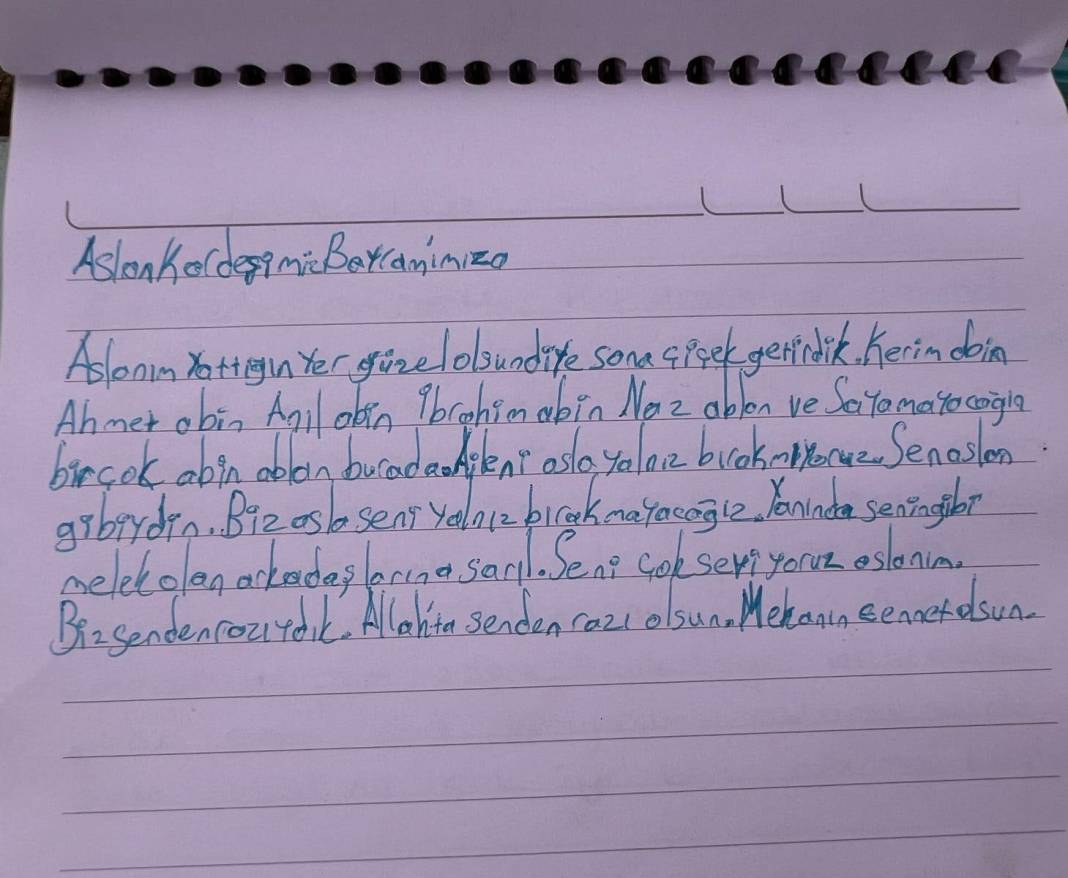 Aslan Kardeşimiz Bayramımıza
Aslanım Yattığın Yer güzel olsun diye sana çiçek getirdik. Kerim abin
Ahmet abin Anıl abin İbrahim abin Naz ablan ve Sayamayacağın
birçok abin ablan burada. Aileni asla yalnız bırakmıyoruz. Sen aslan
gibiydin. Biz asla seni yalnız bırakmayacağız. Yanında senin gibi
melek olan arkadaşlarına sarıl. Seni çok seviyoruz aslanım.
Biz senden razıydık. Allah'ta senden razı olsun. Mekanın cennet olsun.